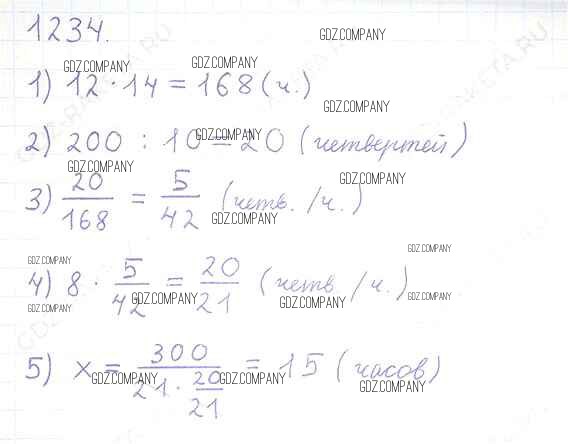 1234.
GDZ.COMPANY
GDZ.COMPANY GDZ.COMPANY
1) 12 · 14 = 168 (ч.)
GDZ.COMPANY
2) 200 : 10 = 20 (четвертей)
GDZ.COMPANY
GDZ.COMPANY
3) 20/168 = 5/42 (четв. /ч.)
GDZ.COMPANY
GDZ.COMPANY
GDZ.COMPANY
GDZ.COMPANY
4) 8 · 5/42 = 20/21 (четв. /ч.)
GDZ.COMPANY GDZ.COMPANY GDZ.COMPANY
GDZ.COMPANY GDZ.COMPANY
5) x = 300/(21 · 20/21) = 15 (часов)
GDZ.COMPANY GDZ.COMPANY GDZ.COMPANY